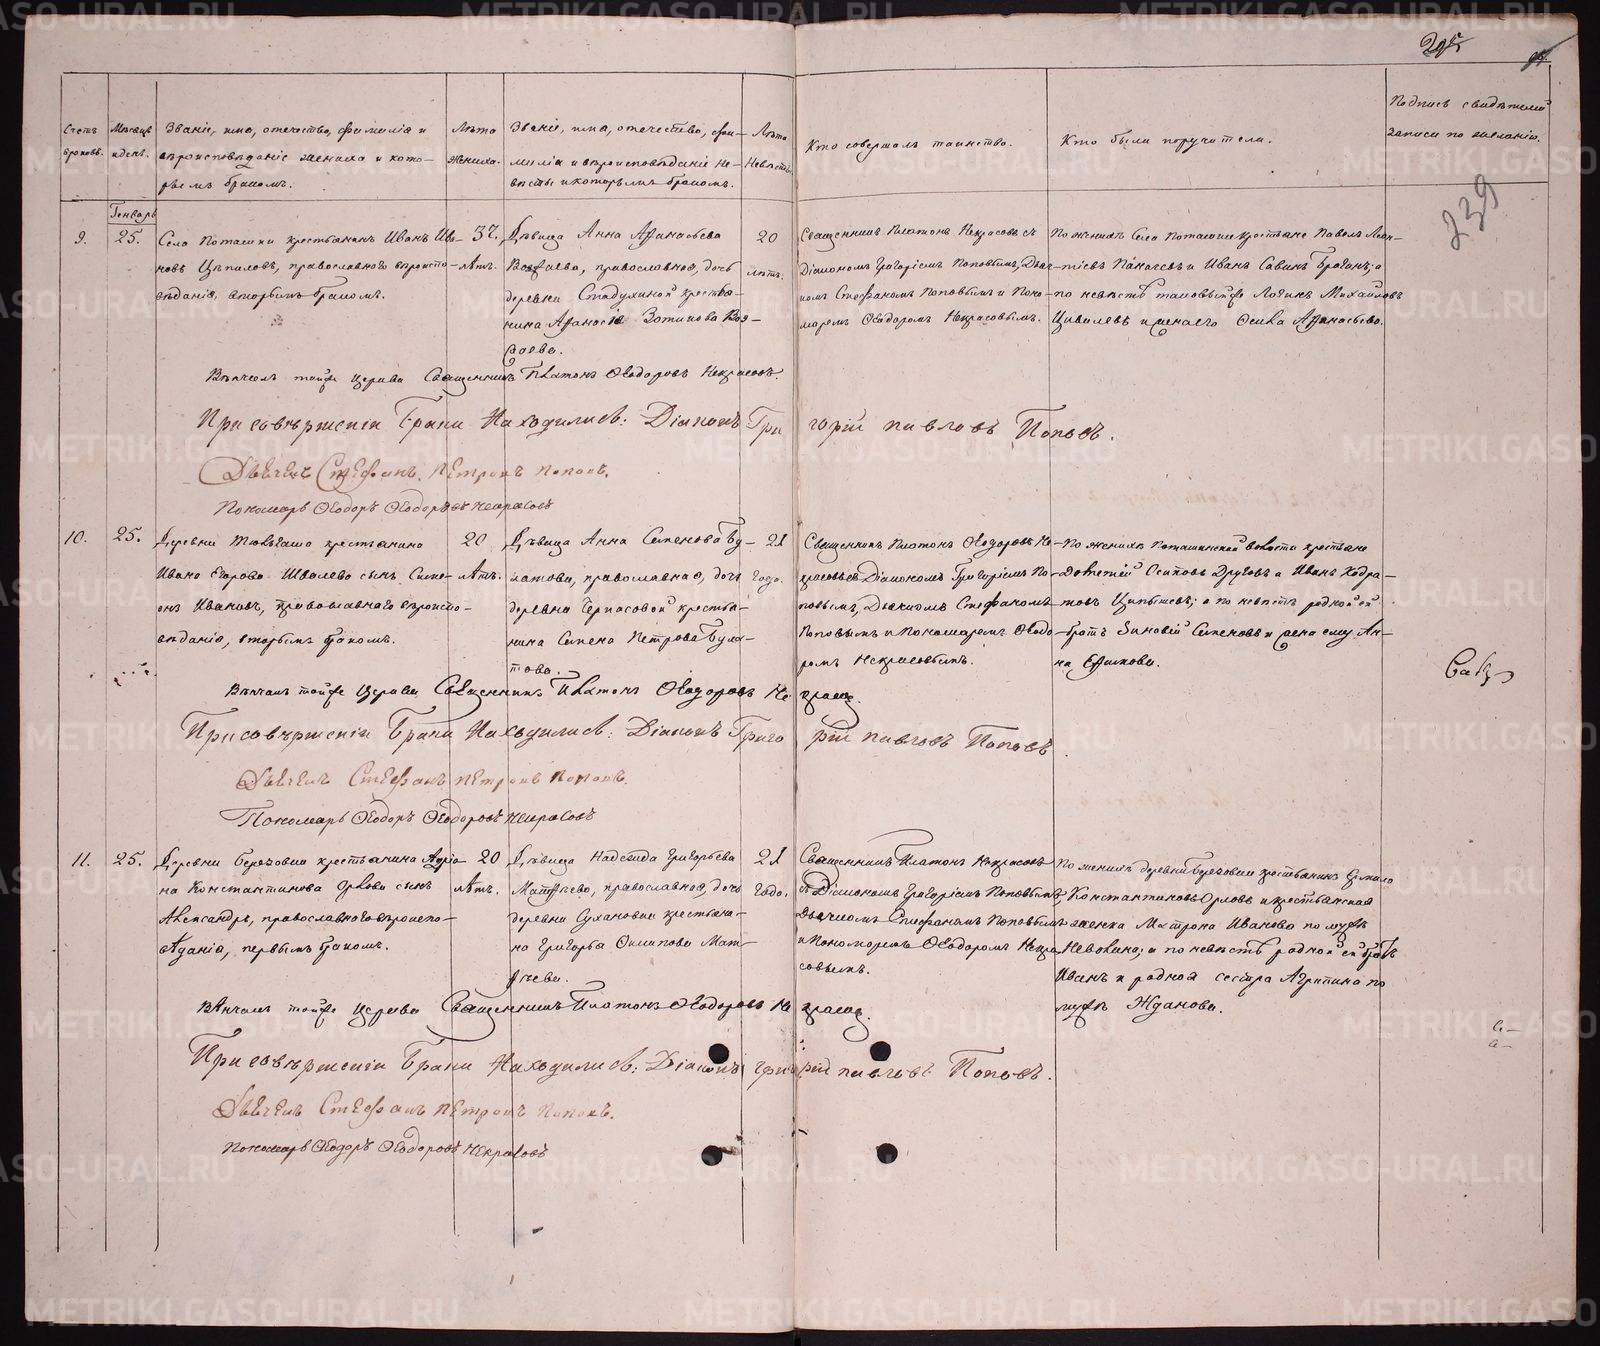 295
95.
239
Счетъ браковъ.
Мѣсяцъ и день.
Званіе, имя, отечество, фамилія и
вѣроисповѣданіе жениха и кото-
рымъ бракомъ.
Лѣта
жениха.
Званіе, имя, отечество, фа-
милія и вѣроисповѣданіе не-
вѣсты и которымъ бракомъ.
Лѣта
Невѣсты.
Кто совершалъ таинство.
Кто были поручители.
Подпись свидѣтелей
записи по желанію.
Генварь
9.
25.
Села Поташки крестьянинъ Иванъ Ива-
новъ Цѣпиловъ, православнаго вѣроиспо-
вѣданія, вторымъ бракомъ.
37.
лѣтъ.
Дѣвица Анна Афанасьева
православная, дочь
деревни Стадухиной крестья-
нина Афанасія Зотикова
20
лѣтъ.
Священникъ Платонъ Некрасовъ съ
Діакономъ Григоріемъ Поповымъ, Дьяч-
комъ Стефаномъ Поповымъ и Поно-
маремъ Ѳеодоромъ Некрасовымъ.
По женихѣ Села Поташки крестьяне Павелъ Леон-
тіевъ и Иванъ Савинъ а
по невѣстѣ Логинъ Михайловъ
Осипа Афанасьева.
Вѣнчалъ тойже Церкви Священникъ Платонъ Ѳеодоровъ Некрасовъ.
При совѣршеніи Брака Находились: Діаконъ Григорій Павловъ Поповъ.
Дьячекъ Стефанъ Петровъ Поповъ.
Пономарь Ѳеодоръ Ѳеодоровъ Некрасовъ
10.
25.
Деревни крестьянина
Ивана Егорова Швалева сынъ Симе-
онъ Ивановъ, православнаго вѣроиспо-
вѣданія, вторымъ бракомъ.
20
лѣтъ.
Дѣвица Анна Семенова Бу-
латова, православная, дочь
деревни крестья-
нина Семена Петрова Була-
това.
21
года.
Священникъ Платонъ Ѳеодоровъ Не-
красовъ съ Діакономъ Григоріемъ По-
повымъ, Дьячкомъ Стефаномъ
Поповымъ и Пономаремъ Ѳеодо-
ромъ Некрасовымъ.
По женихѣ Поташинской волости крестьяне
Осиповъ Друговъ и Иванъ Кодра-
товъ а по невѣстѣ родной ей
братъ Зиновій Семеновъ и жена ему Ан-
на Ефимова.
Вѣнчалъ тойже Церкви Священникъ Платонъ Ѳеодоровъ Некрасовъ.
При совѣршеніи Брака Находились: Діаконъ Григорій Павловъ Поповъ.
Дьячекъ Стефанъ Петровъ Поповъ.
Пономарь Ѳеодоръ Ѳеодоровъ Некрасовъ
11.
25.
Деревни Березовки крестьянина Адріа-
на Константинова Орлова сынъ
Александръ, православнаго вѣроиспо-
вѣданія, первымъ бракомъ.
20
лѣтъ.
Дѣвица Надежда Григорьева
Матѳѣева, православная, дочь
деревни Сухановки крестьяни-
на Григорья Филипова Мат-
ѳѣева.
21
года.
Священникъ Платонъ Некрасовъ
съ Діакономъ Григоріемъ Поповымъ,
Дьячкомъ Стефаномъ Поповымъ
и Пономаремъ Ѳеодоромъ Некра-
совымъ.
По женихѣ деревни Березовки крестьянинъ
Константиновъ Орловъ и крестьянская
женка Матрона Иванова по мужѣ
Неволина; а по невѣстѣ родной ей братъ
Иванъ и родная сестра Агрипина по
мужѣ Жданова.
Вѣнчалъ тойже Церкви Священникъ Платонъ Ѳеодоровъ Некрасовъ.
При совѣршеніи Брака Находились: Діаконъ Григорій Павловъ Поповъ.
Дьячекъ Стефанъ Петровъ Поповъ.
Пономарь Ѳеодоръ Ѳеодоровъ Некрасовъ
METRIKI.GASO-URAL.RU